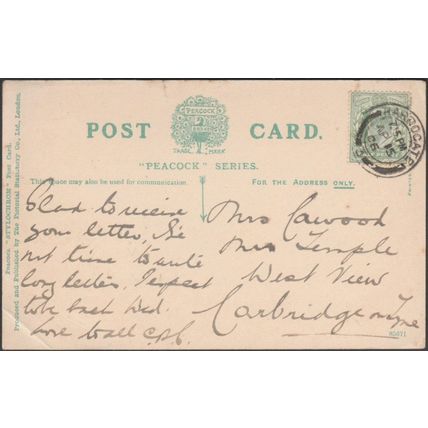 PEACOCK
TRADE MARK
POST CARD.
"PEACOCK" SERIES.
This space may also be used for communication.
FOR THE ADDRESS ONLY.
Peacock "STYLOCHROM" Post Card.
Produced and Published by The Pictorial Stationery Co., Ltd., London.
HARROGATE
Glad to receive
your letter,
not time to write
long letter. I expect
to be back Wed.
love to all
Mrs Cawood
Mrs Temple
West View
Corbridge on Tyne